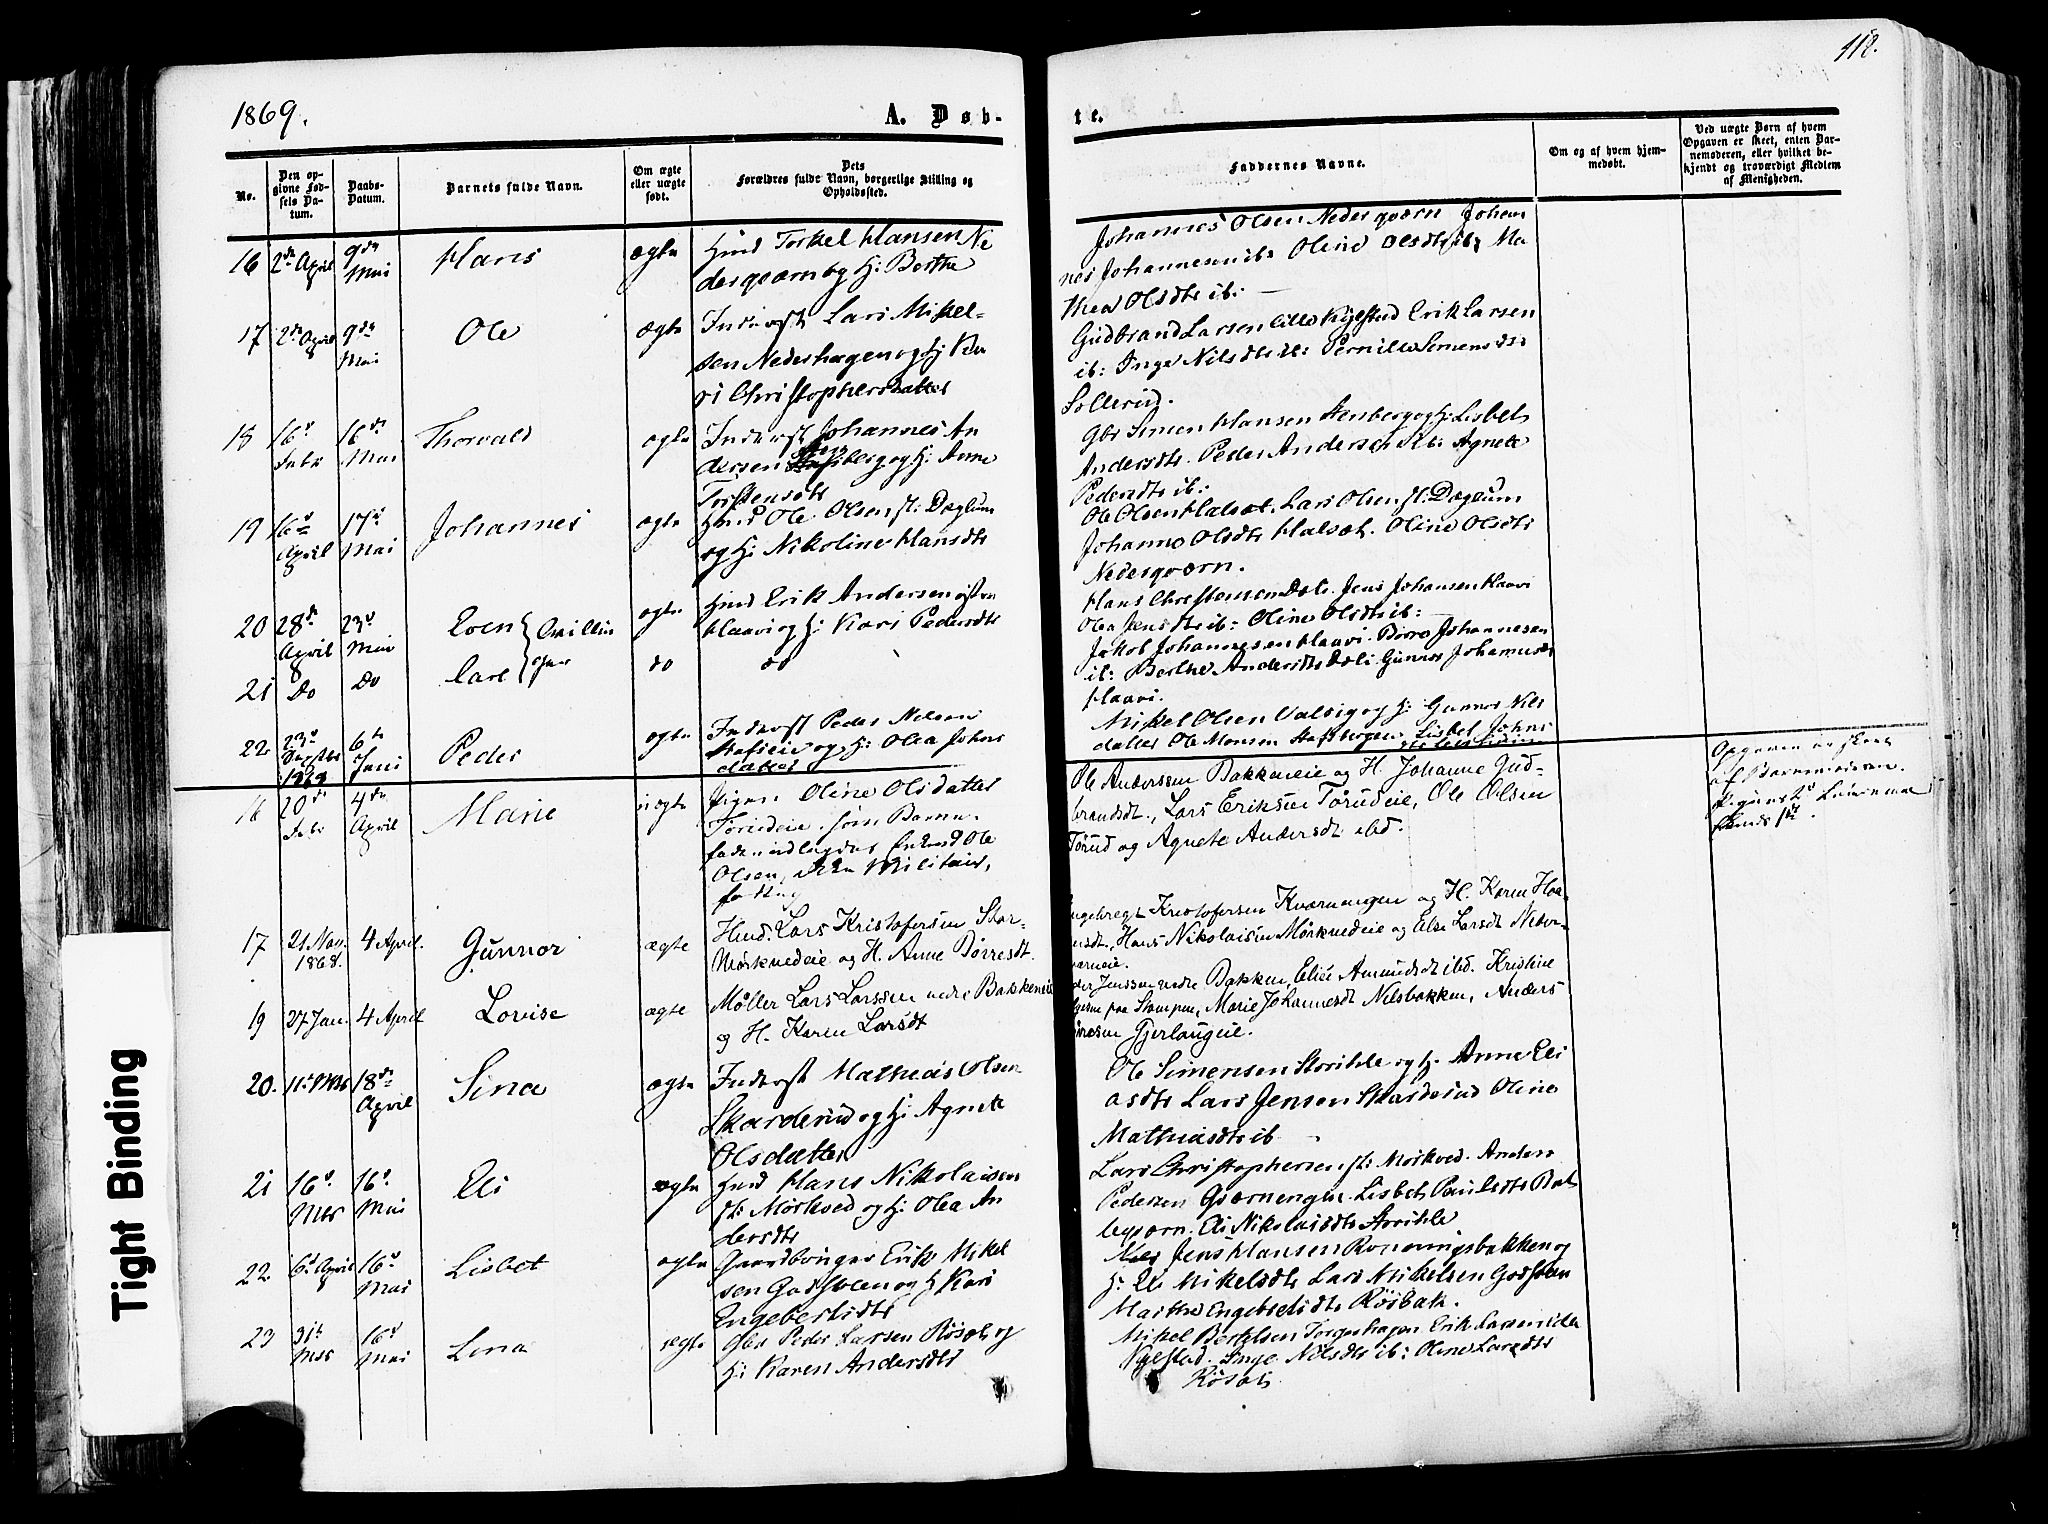 112.
1869.
A. Døb-
te.
No.
Den op-
givne Fød-
sels Da-
tum.
Daabs-
Datum.
Barnets fulde Navn.
Om ægte
eller uægte
født.
Dets
Forældres fulde Navn, borgerlige Stilling og
Opholdssted.
Faddernes Navne.
Om og af hvem hjem-
medøbt.
Ved uægte Børn af hvem
Opgaven er skeet, enten Bar-
nemoderen, eller hvilket be-
kjendt og troværdigt Medlem
af Menigheden.
16 2 April 9 Mai Hans ægte
Torkel Hansen Ne
derqværn og H: Berthe
Johannes Olsen Nederqværn Johan
nes Johannesen ib: Oline Olsdtr ib: Ma
thea Olsdtr ib:
17 2 April 9 Mai Ole ægte
Inderst Lars Mikel-
sen Nederhagen og H: Ka
ri Christophersdatter
Gudbrand Larsen Lille Kylstad Erik Larsen
ib: Inge Nilsdtr ib: Pernille Simensdtr
Sollerud.
18 16 Febr 16 Mai Thorvald ægte
Inderst Johannes An
dersen berg og H: Anne
Torstensdtr
Gbr Simen Hansen Stenberg og H: Lisbet
Andersdtr. Peder Andersen ib: Agnete
Pedersdtr ib:
19 16 April 17 Mai Johannes ægte
Ole Olsen st: Døglum
og H: Nikoline Hansdtr
Ole Olsen Halset. Lars Olsen st: Døglum
Johanne Olsdtr Halset. Oline Olsdtr
Nederqværn.
20 28 April 23 Mai Even ægte
Tvillin
ger
Erik Andersen
Haavi og H: Kari Pedersdtr
Hans Christensen Dæli. Jens Johansen Haavi
Olea Jensdtr ib: Oline Olsdtr ib:
21 Do Do Carl do do
Jakob Johannesen Haavi. Børre Johannesen
ib: Berthe Andersdtr Dæli Gunnor Johannesdtr
Haavi.
22 23 6 Juni Peder ægte
Inderst Peder Nilsen
og H: Olea Johns
datter
Mikel Olsen Valbig og H: Gunnor Nils
datter Ole Monsen Lisbet Johns
16 20 Febr 4 April Marie uægte
Pigen Oline Olsdatter
Tørudeie, som Barne-
fader udlægges Enkemd Ole
Olsen, Militair,
Ole Anderssen Bakkeneie og H. Johanne Gud-
brandsdt., Lars Eriksen Tørudeie, Ole Olsen
Tørud og Agnete Andersdt ibd.
Opgaven er skeet
af Barnemoderen.
17 21 Nov. 1868. 4 April. Gunnor ægte
Husd. Lars Kristofersen Stor-
Mørkvedeie og H. Anne Børresdt.
Kristofersen Kværnengen og H. Karen
Hans Nikolaisen Mørkvedeie og Else Larsdt
19 27 Jan. 4 April Lovise ægte
Møller Lars Larssen nedre Bakkeneie
og H. Karen Larsdt
Jenssen nedre Bakken, Elise Amundsdt ibd. Kristine
paa Stampen, Marie Johannesdt Nilsbakken, Anders
Gjerlaugeie.
20. 11 Mrs 18 April Sina ægte
Inderst Matheas Olsen
Skarderud og H: Agnete
Olsdatter
Ole Simensen Storihle og H: Anne Eli
asdtr Lars Jensen Skarderud Oline
Mathiasdtr ib
21 16 Mrs 16 Mai Eli ægte
Hans Nikolaisen
st: Mørkved og H: Olea An
dersdtr
Lars Christophersen st: Mørkved. Anders
Pedersen Qværnengen. Lisbet Paulsdtr Bal
leqværn. Eli Nikolaisdtr Storihle
22 6 April 16 Mai Lisbet ægte
Gaardbruger Erik Mikel
sen Godsolen og H Kari
Engebretsdtr
Jens Hansen Rønningsbakken og
H: Mikelsdtr Lars Mikelsen Godsolen
Marthe Engebretsdtr Røsbak.
23 31 Mrs 16 Mai Lina ægte
Gbr Peder Larsen Røset og
H: Karen Andersdtr
Mikel Bertelsen Torgershagen Erik Larsen
Kylstad. Inge Nilsdtr ib: Oline Larsdtr
Røset
Tight Binding